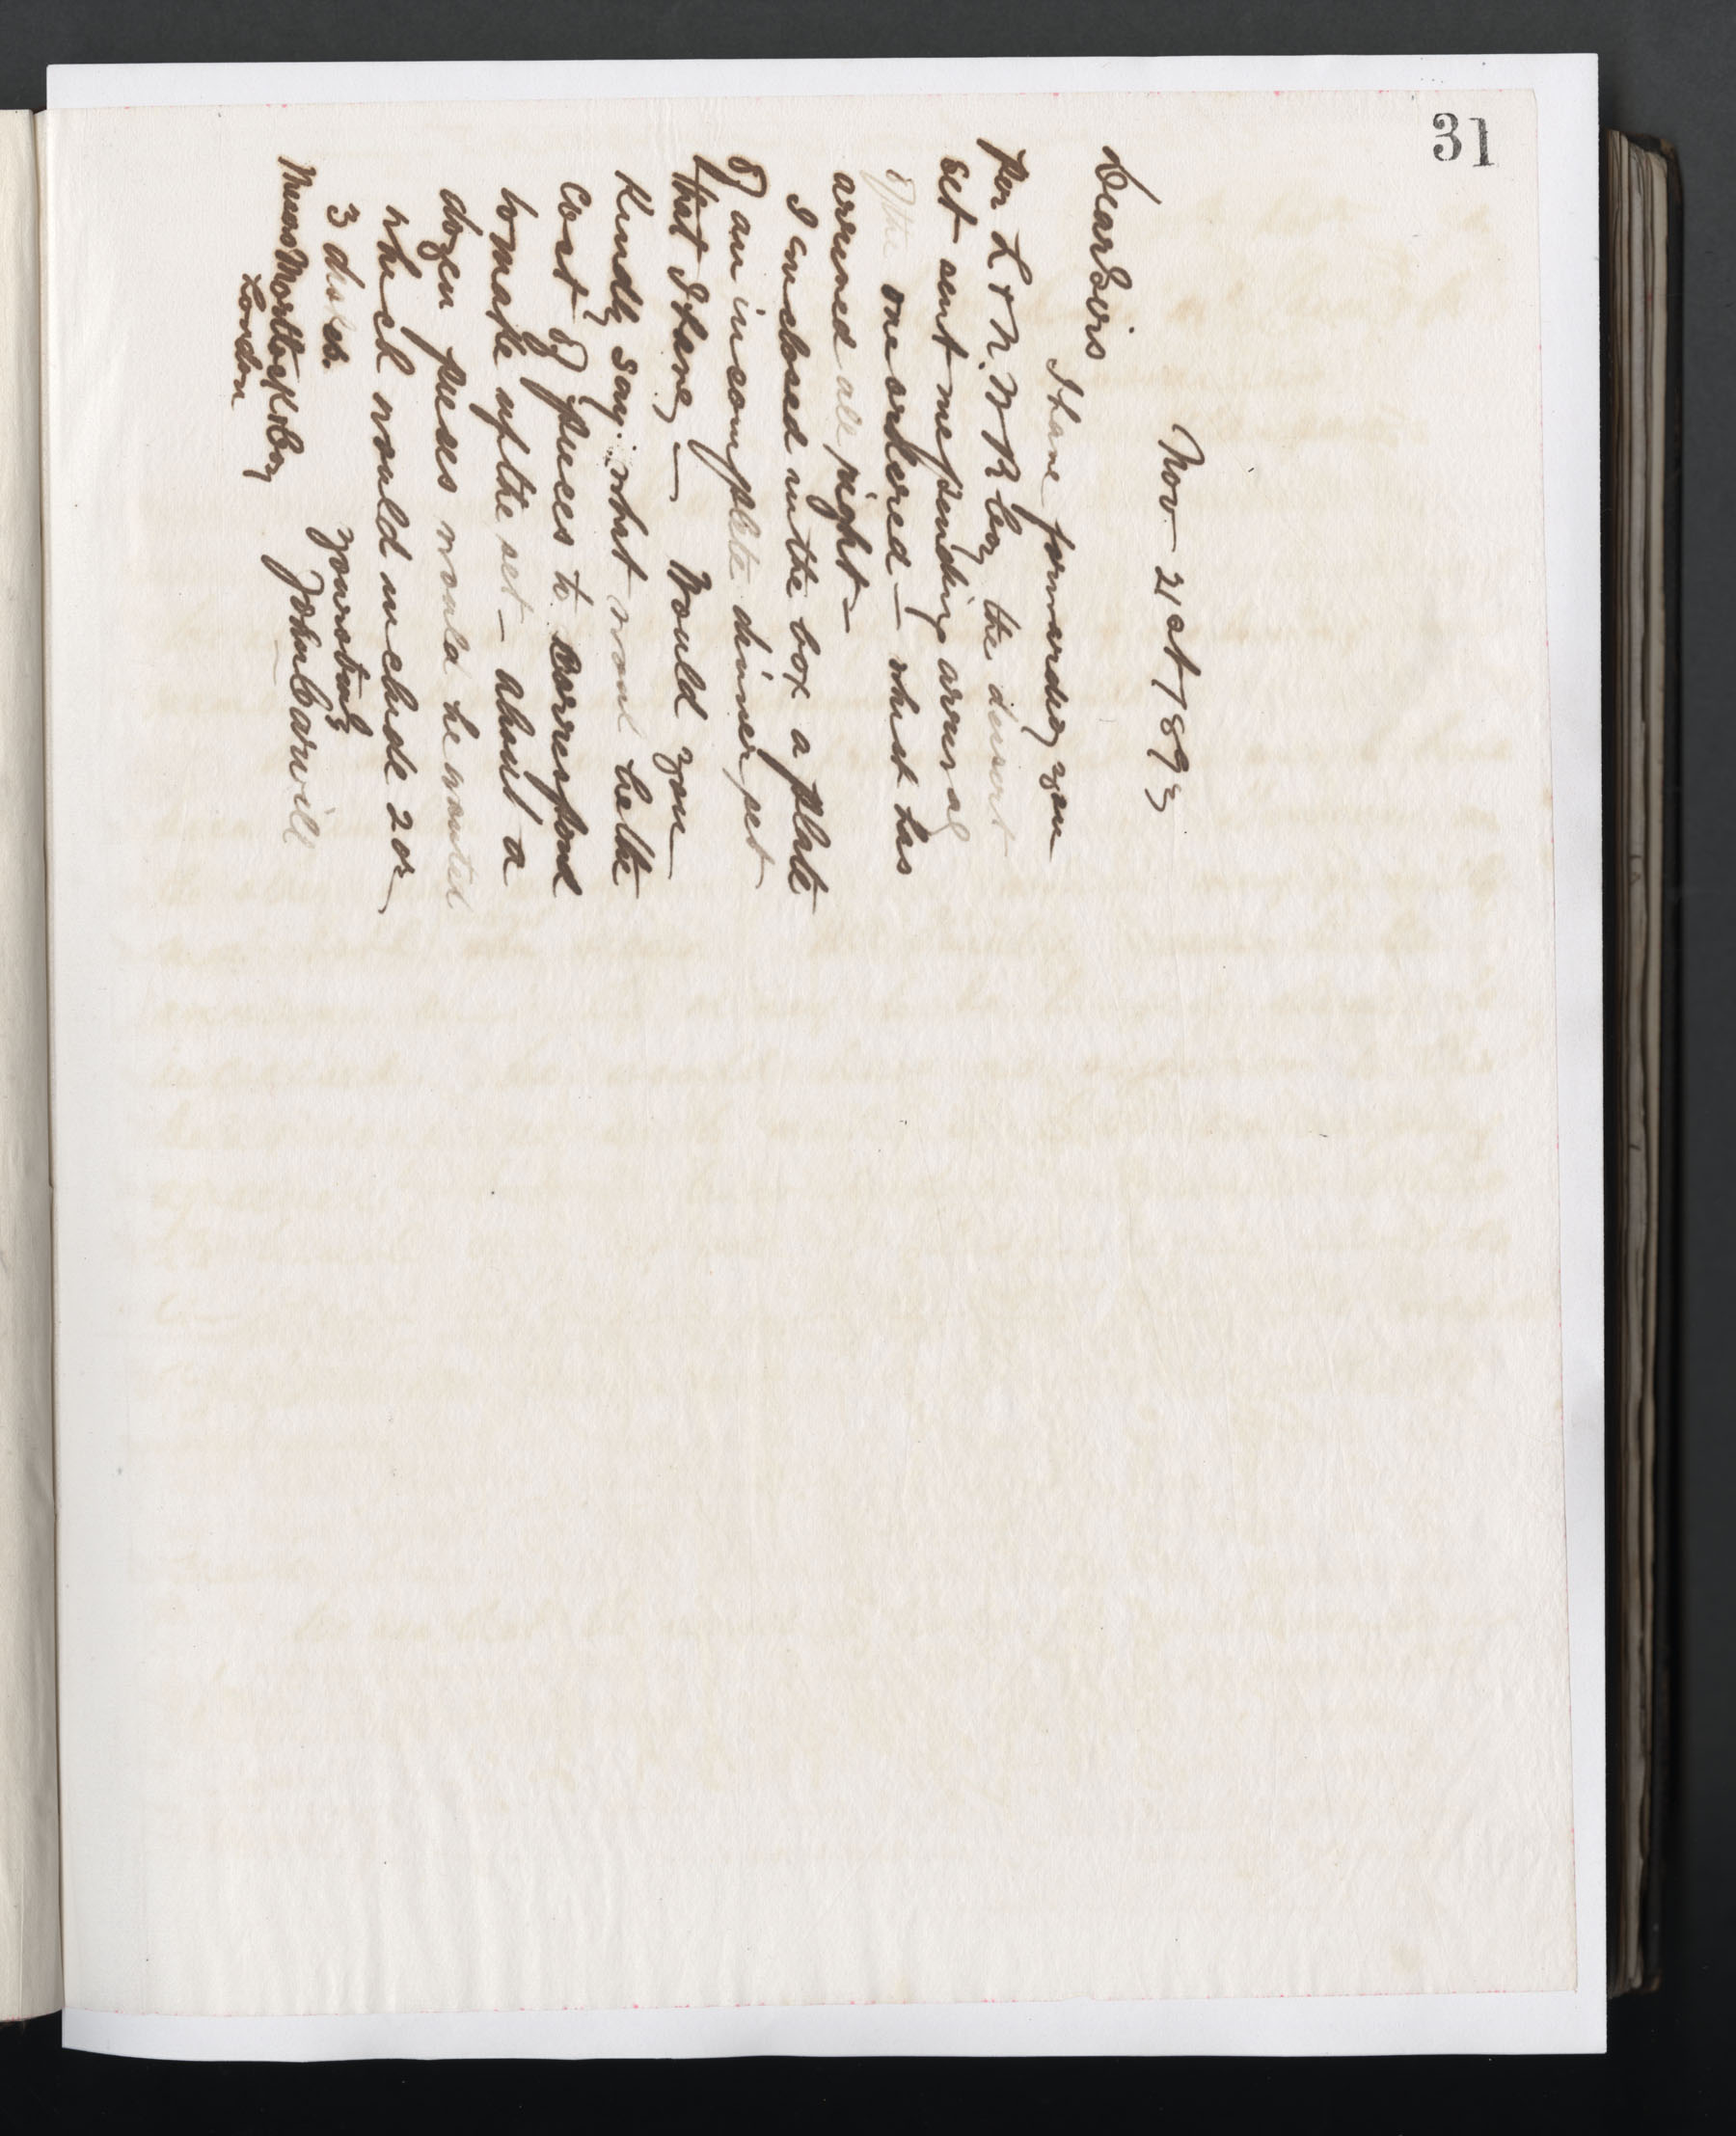 31
Nov 21st 1893
Dear Sirs
I have forwarded you
per L & N. W R Coy the desert
set sent me pending arrival
of the one ordered — which has
arrived all right —
I enclosed in the box a plate
of an incomplete dinner set
that I have — Would you
Kindly say what would be the
cost of pieces to correspond
to make up the set — about a
dozen pieces would be wanted
which would include 2 or
3 dishes.
Yours truly
John Carwill
Messrs Mortlock & Coy
London